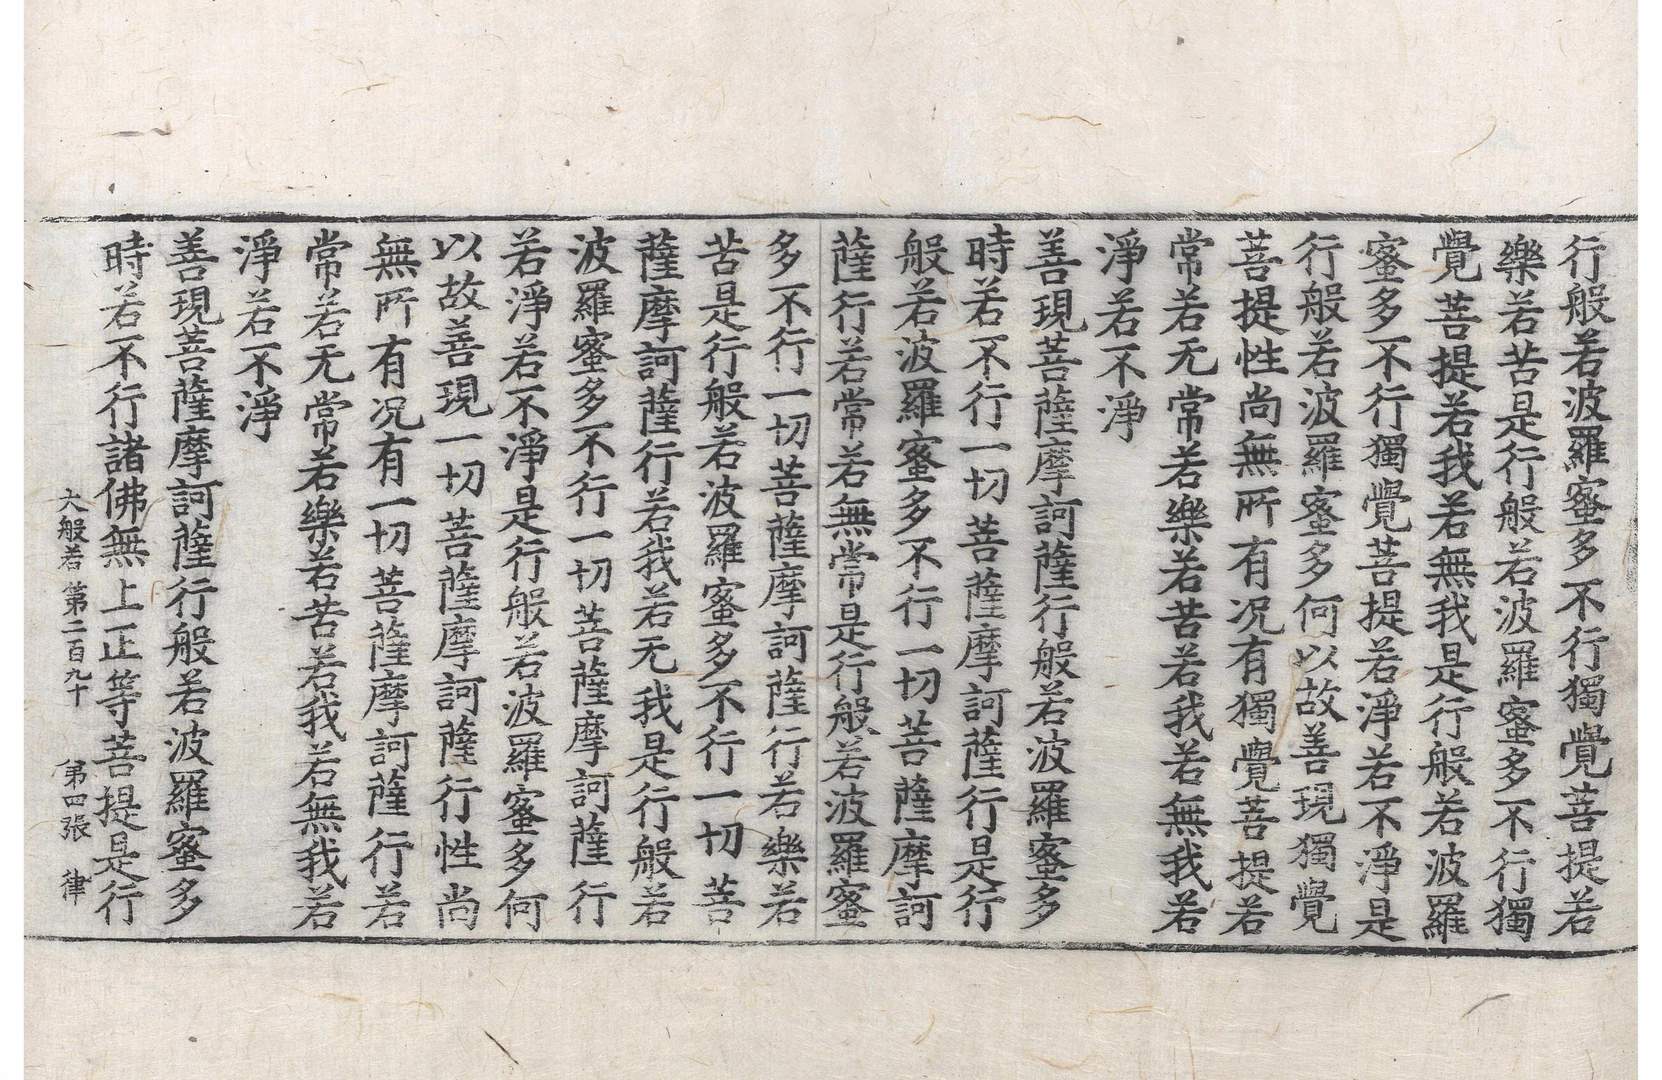 行般若波羅蜜多不行獨覺菩提若
樂若苦是行般若波羅蜜多不行獨
覺菩提若我若無我是行般若波羅
蜜多不行獨覺菩提若淨若不淨是
行般若波羅蜜多何以故善現獨覺
菩提性尚無所有况有獨覺菩提若
常若无常若樂若苦若我若無我若
淨若不淨
善現菩薩摩訶薩行般若波羅蜜多
時若不行一切菩薩摩訶薩行是行
般若波羅蜜多不行一切菩薩摩訶
薩行若常若無常是行般若波羅蜜
多不行一切菩薩摩訶薩行若樂若
苦是行般若波羅蜜多不行一切菩
薩摩訶薩行若我若无我是行般若
波羅蜜多不行一切菩薩摩訶薩行
若淨若不淨是行般若波羅蜜多何
以故善現一切菩薩摩訶薩行性尚
無所有况有一切菩薩摩訶薩行若
常若无常若樂若苦若我若無我若
淨若不淨
善現菩薩摩訶薩行般若波羅蜜多
時若不行諸佛無上正等菩提是行
大般若第二百九十 第四張 律